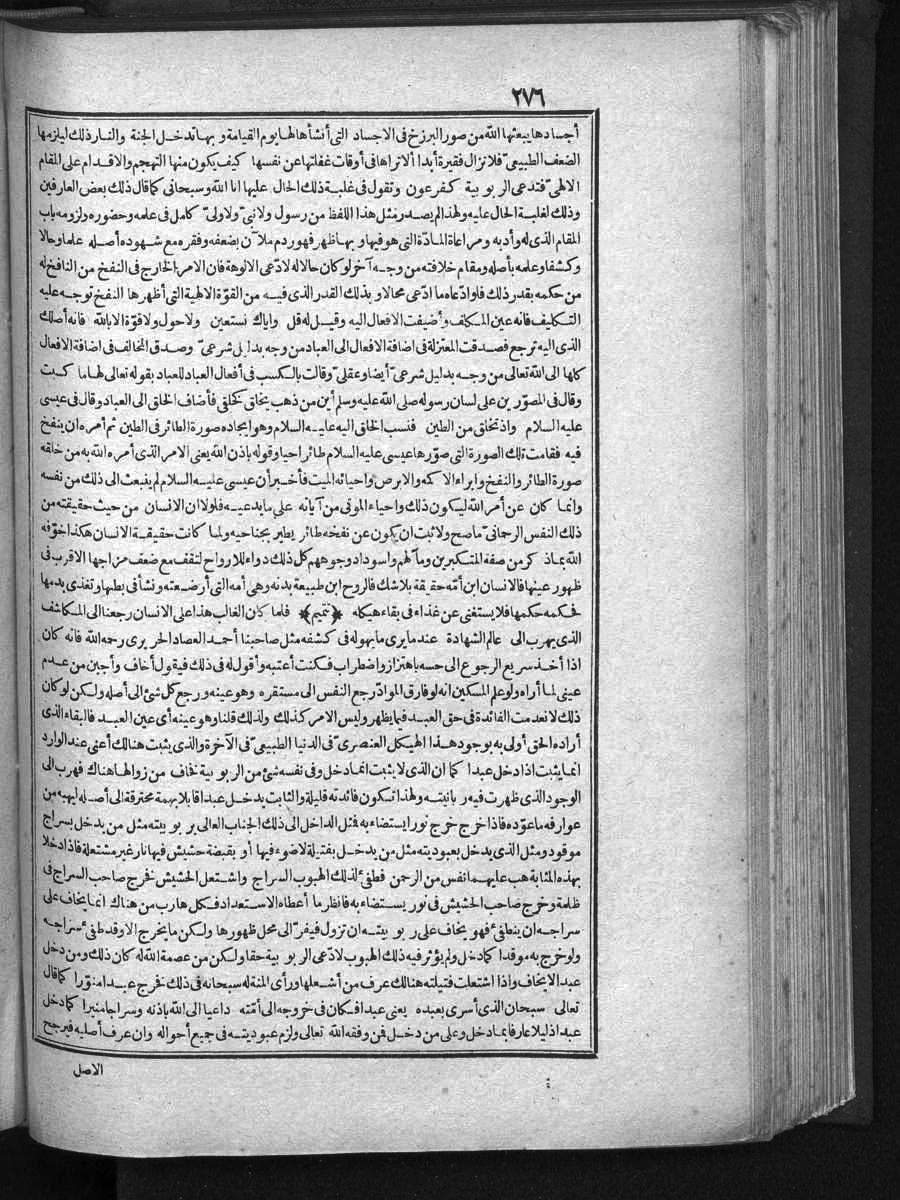 ٢٧٦
أجسادها يبعثها الله من صور البرزخ فى الاجساد التى أنشأها لها يوم القيامة وبها تدخل الجنة والنار ذلك ليلزمها
الضعف الطبيعىّ فلا تزال فقيرة أبدا ألا تراها فى أوقات غفلتها عن نفسها كيف يكون منها التهجم والاقدام على المقام
الالهىّ فتدعى الربوبية كفرعون وتقول فى غلبة ذلك الحال عليها انا الله وسبحانى كما قال ذلك بعض العارفين
وذلك لغلبة الحال عليه ولهذا لم يصدر مثل هذا اللفظ من رسول ولا نبىّ ولا ولىّ كامل فى علمه وحضوره ولزومه باب
المقام الذى له وأدبه ومراعاة المادّة التى هو فيها وبها ظهر فهو ردم ملآن بضعفه وفقره مع شهوده أصله علما وحالا
وكشفا وعلمه بأصله ومقام خلافته من وجه آخر لو كان حالا له لادّعى الالوهة فان الامر الخارج فى النفخ من النافخ له
من حكمه بقدر ذلك فلو ادّعاه ما ادّعى محالا وبذلك القدر الذى فيه من القوّة الالهية التى أظهرها النفخ توجه عليه
التكليف فانه عين المكلف وأضيفت الافعال اليه وقيل له قل واياك نستعين ولا حول ولا قوّة الا بالله فانه أصلك
الذى اليه ترجع فصدقت المعتزلة فى اضافة الافعال الى العباد من وجه بدليل شرعىّ وصدق المخالف فى اضافة الافعال
كلها الى الله تعالى من وجه بدليل شرعىّ أيضا وعقلىّ وقالت بالكسب فى أفعال العباد للعباد بقوله تعالى لها ما كسبت
وقال فى المصوّرين على لسان رسوله صلى الله عليه وسلم أين من ذهب يخلق كخلقى فأضاف الخلق الى العباد وقال فى عيسى
عليه السلام واذ تخلق من الطين فنسب الخلق اليه عليه السلام وهو ايجاده صورة الطائر فى الطين ثم أمره ان ينفخ
فيه فقامت تلك الصورة التى صوّرها عيسى عليه السلام طائرا حيا وقوله باذن الله يعنى الامر الذى أمره الله به من خلقه
صورة الطائر والنفخ وابراء الاكمه والابرص واحيائه الميت فأخبر أن عيسى عليه السلام لم ينبعث الى ذلك من نفسه
وانما كان عن أمر الله ليكون ذلك واحياء الموتى من آياته على ما يدعيه فلولا ان الانسان من حيث حقيقته من
ذلك النفس الرحمانىّ ما صح ولا ثبت ان يكون عن نفخه طائر يطير بجناحيه ولما كانت حقيقة الانسان هكذا خوّفه
الله بما ذكر من صفة المتكبرين ومآلهم واسوداد وجوههم كل ذلك دواء للارواح لتقف مع ضعف مزاجها الاقرب فى
ظهور عينها فالانسان ابن أمّه حقيقة بلا شك فالروح ابن طبيعة بدنه وهى أمه التى أرضعته ونشأ فى بطنها وتغذى بدمها
فحكمه حكمها فلا يستغنى عن غذاء فى بقاء هيكله ﴿تتميم﴾ فلما كان الغالب هذا على الانسان رجعنا الى المكاشف
الذى يهرب الى عالم الشهادة عند ما يرى ما يهوله فى كشفه مثل صاحبنا أحمد العصاد الحريرى رحمه الله فانه كان
اذا أخذ سريع الرجوع الى حسه باهتزاز واضطراب فكنت أعتبه وأقول له فى ذلك فيقول أخاف وأجبن من عدم
عينى لما أراه ولو علم المسكين انه لو فارق الموادّ رجع النفس الى مستقره وهو عينه ورجع كل شئ الى أصله ولكن لو كان
ذلك لانعدمت الفائدة فى حق العبد فيما يظهر وليس الامر كذلك ولذلك قلنا وهو عينه أى عين العبد فالبقاء الذى
أراده الحق أولى به بوجود هذا الهيكل العنصرىّ فى الدنيا الطبيعىّ فى الآخرة والذى يثبت هنالك أعنى عند الوارد
انما يثبت اذا دخل عبدا كما ان الذى لا يثبت انما دخل وفى نفسه شئ من الربوبية فخاف من زوالها هناك فهرب الى
الوجود الذى ظهرت فيه ربانيته ولهذا تكون فائدته قليلة والثابت يدخل عبدا قابلا بهمة محترقة الى أصله ليهبه من
عوارفه ما عوّده فاذا خرج خرج نورا يستضاء به فمثل الداخل الى ذلك الجناب العالى بربوبيته مثل من يدخل بسراج
موقود ومثل الذى يدخل بعبوديته مثل من يدخل بفتيلة لا ضوء فيها أو بقبضة حشيش فيها نار غير مشتعلة فاذا دخلا
بهذه المثابة هب عليهما نفس من الرحمن فطفئ لذلك الهبوب السراج واشتعل الحشيش فخرج صاحب السراج فى
ظلمة وخرج صاحب الحشيش فى نور يستضاء به فانظر ما أعطاه الاستعداد فكل هارب من هناك انما يخاف على
سراجه ان ينطفئ فهو يخاف على ربوبيته ان تزول فيفرّ الى محل ظهورها ولكن ما يخرج الا وقد طفئ سراجه
ولو خرج به موقدا كما دخل ولم يؤثر فيه ذلك الهبوب لادّعى الربوبية حقا ولكن من عصمة الله له كان ذلك ومن دخل
عبدا لا يخاف واذا اشتعلت فتيلته هنالك عرف من أشعلها ورأى المنة له سبحانه فى ذلك فخرج عبدا منوّرا كما قال
تعالى سبحان الذى أسرى بعبده يعنى عبدا فكان فى خروجه الى أمّته داعيا الى الله باذنه وسراجا منيرا كما دخل
عبدا ذليلا عارفا بما دخل وعلى من دخل فمن وفقه الله تعالى ولزم عبوديته فى جميع أحواله وان عرف أصليه فيرجح
الاصل